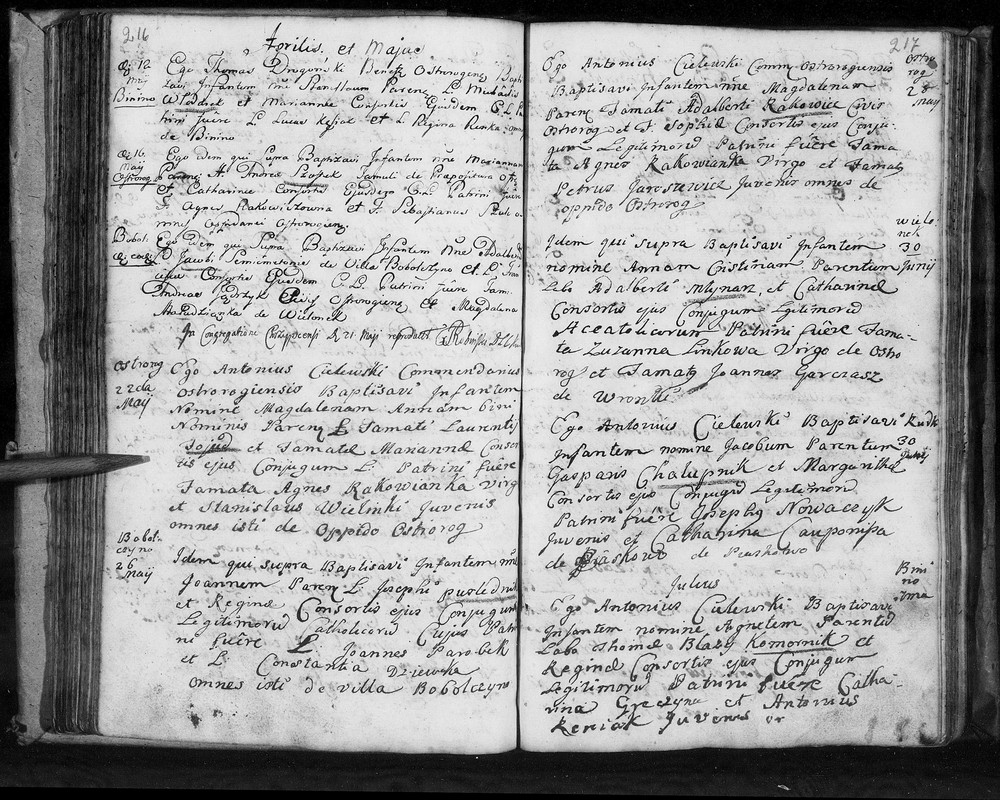 216
Aprilis et Majus
Die 12
Maij
Binino
Ego Thomas Drogoński Ostrorogens Bapti
zavi Infantem nne Stanislaum Paren L. Michaelis
Włodark et Mariannae Consortis Ejusdem C. L. P
trini fuêre L. Lucas et L. Regina
de Binino
Die 16
Maij
Ostrorog
Ego idem qui Supra Baptizavi Infantem nne Mariannam
Paren. F. Andreae Szostek Famuli de Praepositura
et Catharinae Consortis Ejusdem C. L. Patrini fuêre
F. Agnes Rakowiczowna et F. Sebastianus
omnes Oppidani Ostrorogens
Bobol.
die eadem
Ego idem qui Supra Baptizavi Infantem Nne Adalber
L. Jacobi Semicmetonis de Villa Bobolszyno et L.
Consortis Ejusdem C. L. Patrini fuêre Fam.
Andreas Ostrorogiens et Magdalena
de Wielonek
In Congregatione D. 21 Maij
Ostrorog
22da
Maij
Ego Antonius Cielewski Commendarius
Ostrorogiensis Baptisavi Infantem
Nomine Magdalenam Annam bini
Nominis Paren Famati Laurentij
et Famatae Mariannae Consor
tis ejus Conjugum L. Patrini fuêre
Famata Agnes Rakowianka Virgo
et Stanislaus Wielinki Juvenis
omnes isti de Oppido Ostrorog
Bobol-
czyno
26
Maij
Idem qui supra Baptisavi Infantem nne
Joannem Paren L. Josephi Puslednik
et Reginae Consortis ejus Conjugum
Legitimorū Catholicorū Cujus Patri
ni fuêre L. Joannes Parobek
et L. Constantia Dziewka
omnes isti de villa Bobolczyno
217
Ostro
rog
28
Maij
Ego Antonius Cielewski Comm Ostrorogiensis
Baptisavi Infantem nne Magdalenam
Paren Famati Adalberti Rakowicz Civis
Ostrorog et F. Sophiae Consortis ejus Conju-
gum Legitimorū Patrini fuêre Fama
ta Agnes Rakowianka Virgo et Famatq
Petrus Jarosiewicz Juvenis omnes de
oppido Ostrorog
Wielo
nek
30
Junij
Idem qui supra Baptisavi Infantem
nomine Annam Cristinam Parentum
Labo Adalberti Mlynarz et Catharinae
Consortis ejus Conjugum Legitimorū
Acatolicorum Patrini fuêre Fama-
ta Zuzanna Linkowa Virgo de Ostro
rog et Famatq Joannes Garczasz
de Wronki
Rudk
30
Junij
Ego Antonius Cielewski Baptisavi
Infantem nomine Jacobum Parentum
Gasparis Chalupnik et Margarithae
Consortis ejus Conjugū Legitimorū
Patrini fuêre Josephq Nowaczyk
Juvenis et Catharina Cauponissa
de Piaskowo de Piaskowo
Julius
Bini
no
Ego Antonius Cielewski Baptisavi
Infantem nomine Agnetem Parentū
Labo Thomae Blazy Komornik et
Reginae Consortis ejus Conjugum
Legitimorū Patrini fuêre Catha-
rina Greczyna et Antonius
Reniak Juvenis